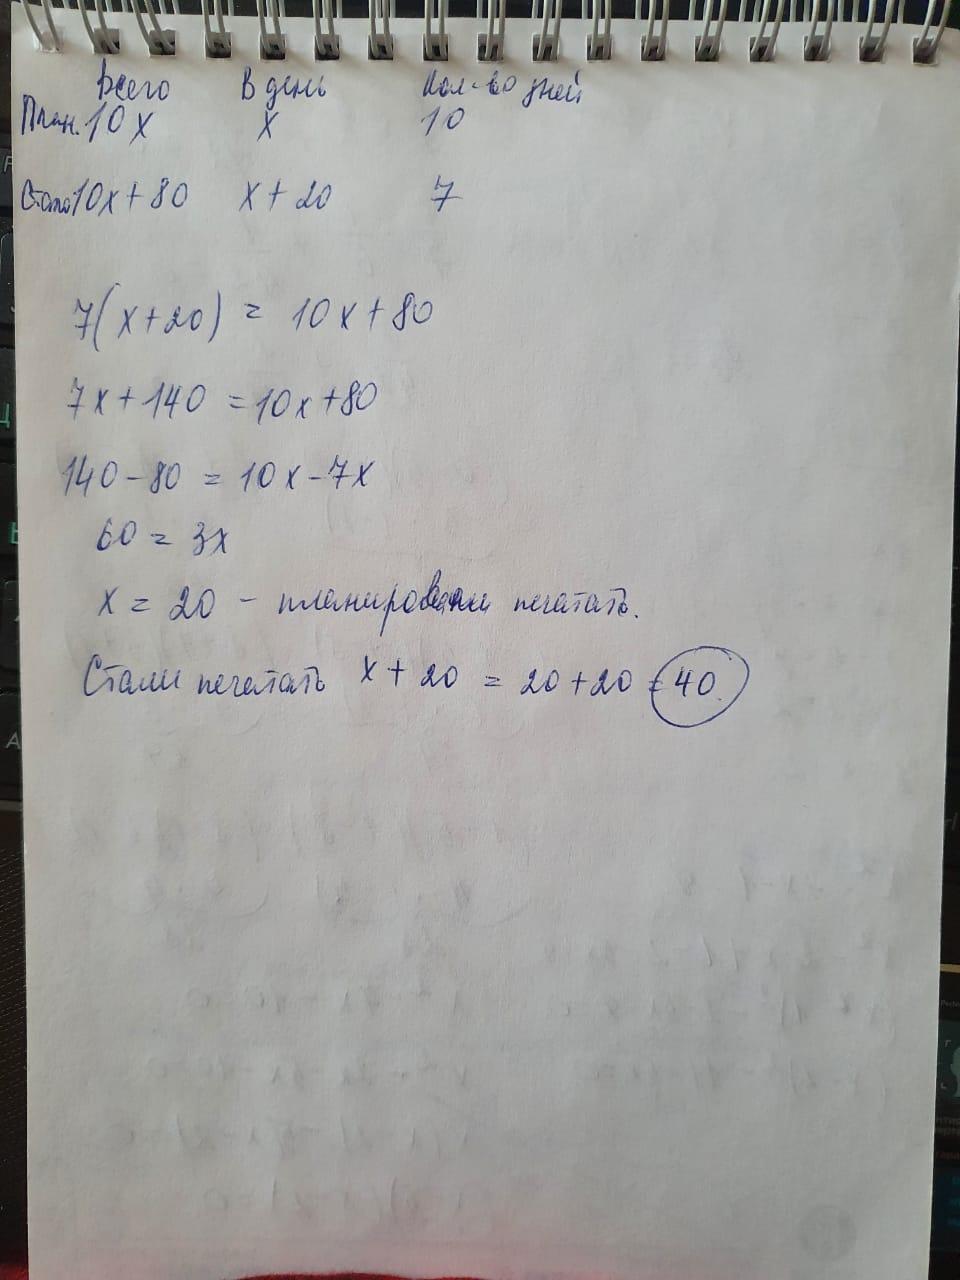 Всего В день Кол-во дней
План. 10x x 10
Стало 10x+80 x+20 7
7(x+20) = 10x+80
7x+140 = 10x+80
140-80 = 10x-7x
60 = 3x
x = 20 - планировали печатать.
Стали печатать x+20 = 20+20 = 40.